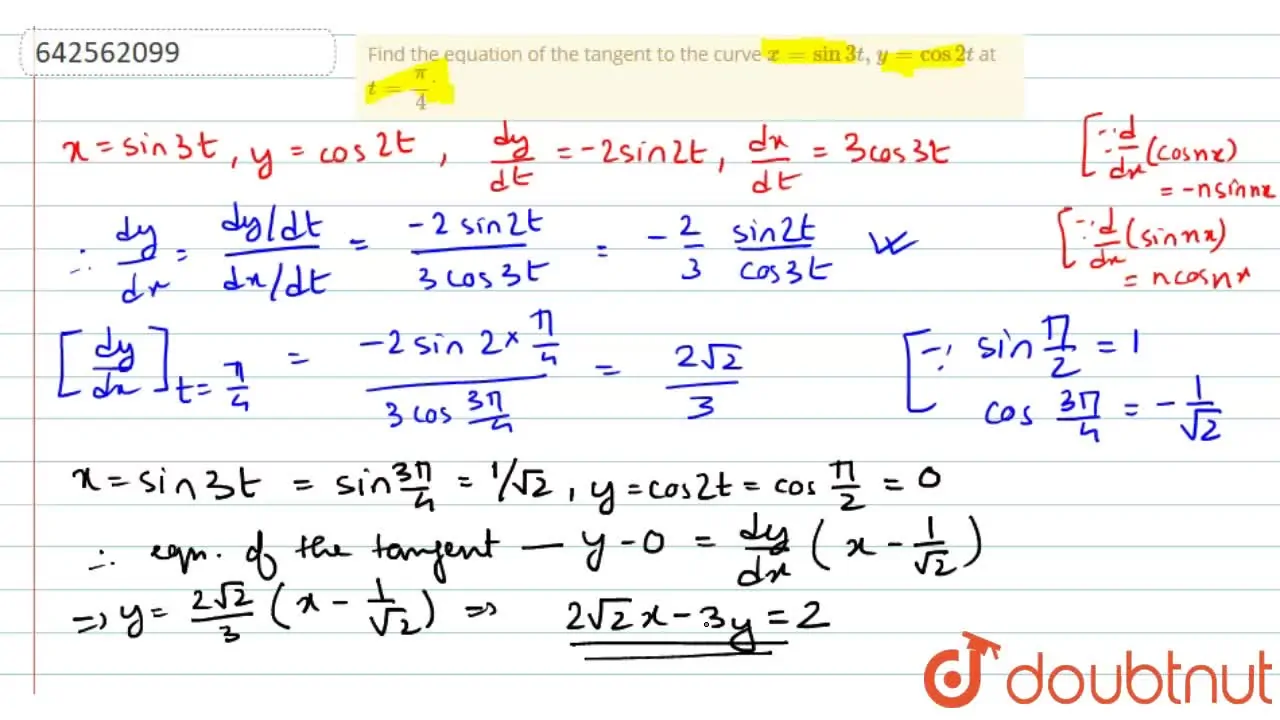 642562099
Find the equation of the tangent to the curve x = sin 3t, y = cos 2t at
t = π/4.
x = sin 3t, y = cos 2t, dy/dt = -2 sin 2t, dx/dt = 3 cos 3t
[∵ d/dx (cos nx)
= -n sin nx
∴ dy/dx = (dy/dt)/(dx/dt) = (-2 sin 2t)/(3 cos 3t) = -2/3 (sin 2t)/(cos 3t)
[∵ d/dx (sin nx)
= n cos nx
[dy/dx] t = π/4 = (-2 sin 2 × π/4)/(3 cos 3π/4) = 2√2/3
[∵ sin π/2 = 1
cos 3π/4 = -1/√2
x = sin 3t = sin 3π/4 = 1/√2, y = cos 2t = cos π/2 = 0
∴ eqn. of the tangent — y - 0 = dy/dx (x - 1/√2)
⇒ y = 2√2/3 (x - 1/√2) ⇒ 2√2 x - 3y = 2
doubtnut